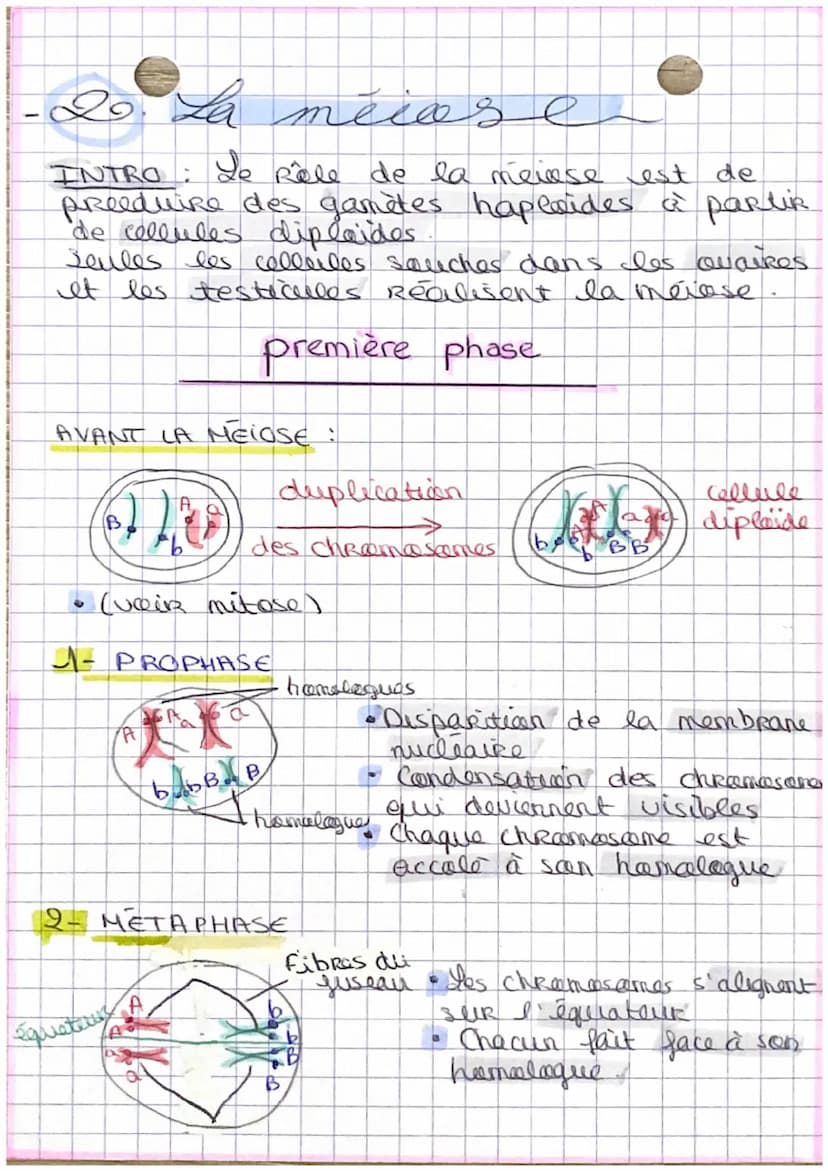 - 2°. La méiose
INTRO : Le Rôle de la meiose est de
produire des gamètes haploïdes à partir
de cellules diploïdes.
seules les cellules souches dans les ovaires
et les testicules Réalisent la méiose.
première phase
AVANT LA MÉIOSE :
duplication
des chromosomes
cellule
diploïde
B b A a
b b A a a
b B B
• (voir mitose)
1- PROPHASE
homologues
A A a a
b b B B
homologue
• Disparition de la membrane
nucléaire
• Condensation des chromosome
qui deviennent visibles
• Chaque chromosome est
accolé à son homologue
2- MÉTAPHASE
Fibres du
fuseau
équateur
A b
A b
a B
a B
• Les chromosomes s'alignent
sur l'équateur
• Chacun fait face à son
homologue.